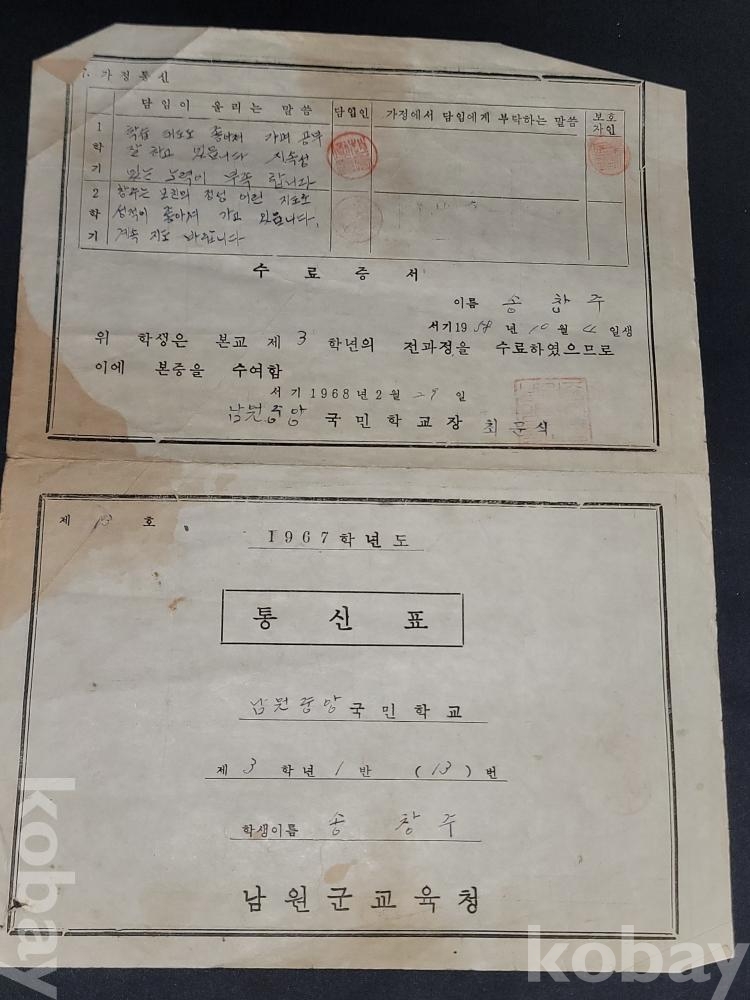 7. 가정통신
담임이 올리는 말씀 담임인 가정에서 담임에게 부탁하는 말씀 보호자인
1학기
학습 태도도 좋아져 가며 공부
잘 하고 있습니다 지속성
있는 노력이 부족 합니다
2학기
창주는 모친의 정성 어린 지도로
성적이 좋아져 가고 있습니다.
계속 지도 바랍니다
수료증서
이름 송창주
서기 19 년 10월 일생
위 학생은 본교 제 3 학년의 전과정을 수료하였으므로
이에 본증을 수여함
서기 1968년 2월 일
남원중앙 국민학교장 최문식
제 13 호
1967학년도
통신표
남원중앙국민학교
제 3 학년 1 반 (13) 번
학생이름 송창주
남원군교육청
kobay
kobay